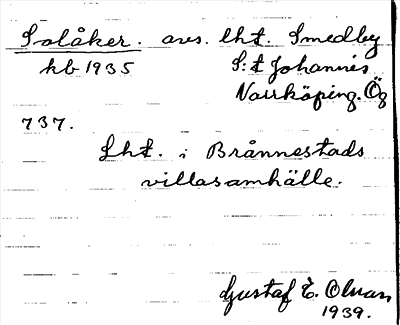 Solåker. avs. lht. Smedby
kb 1935 S:t Johannes
Norrköping. Ög
737.
Lht. i Brånnestads
villasamhälle.
Gustaf E. Olson
1939.